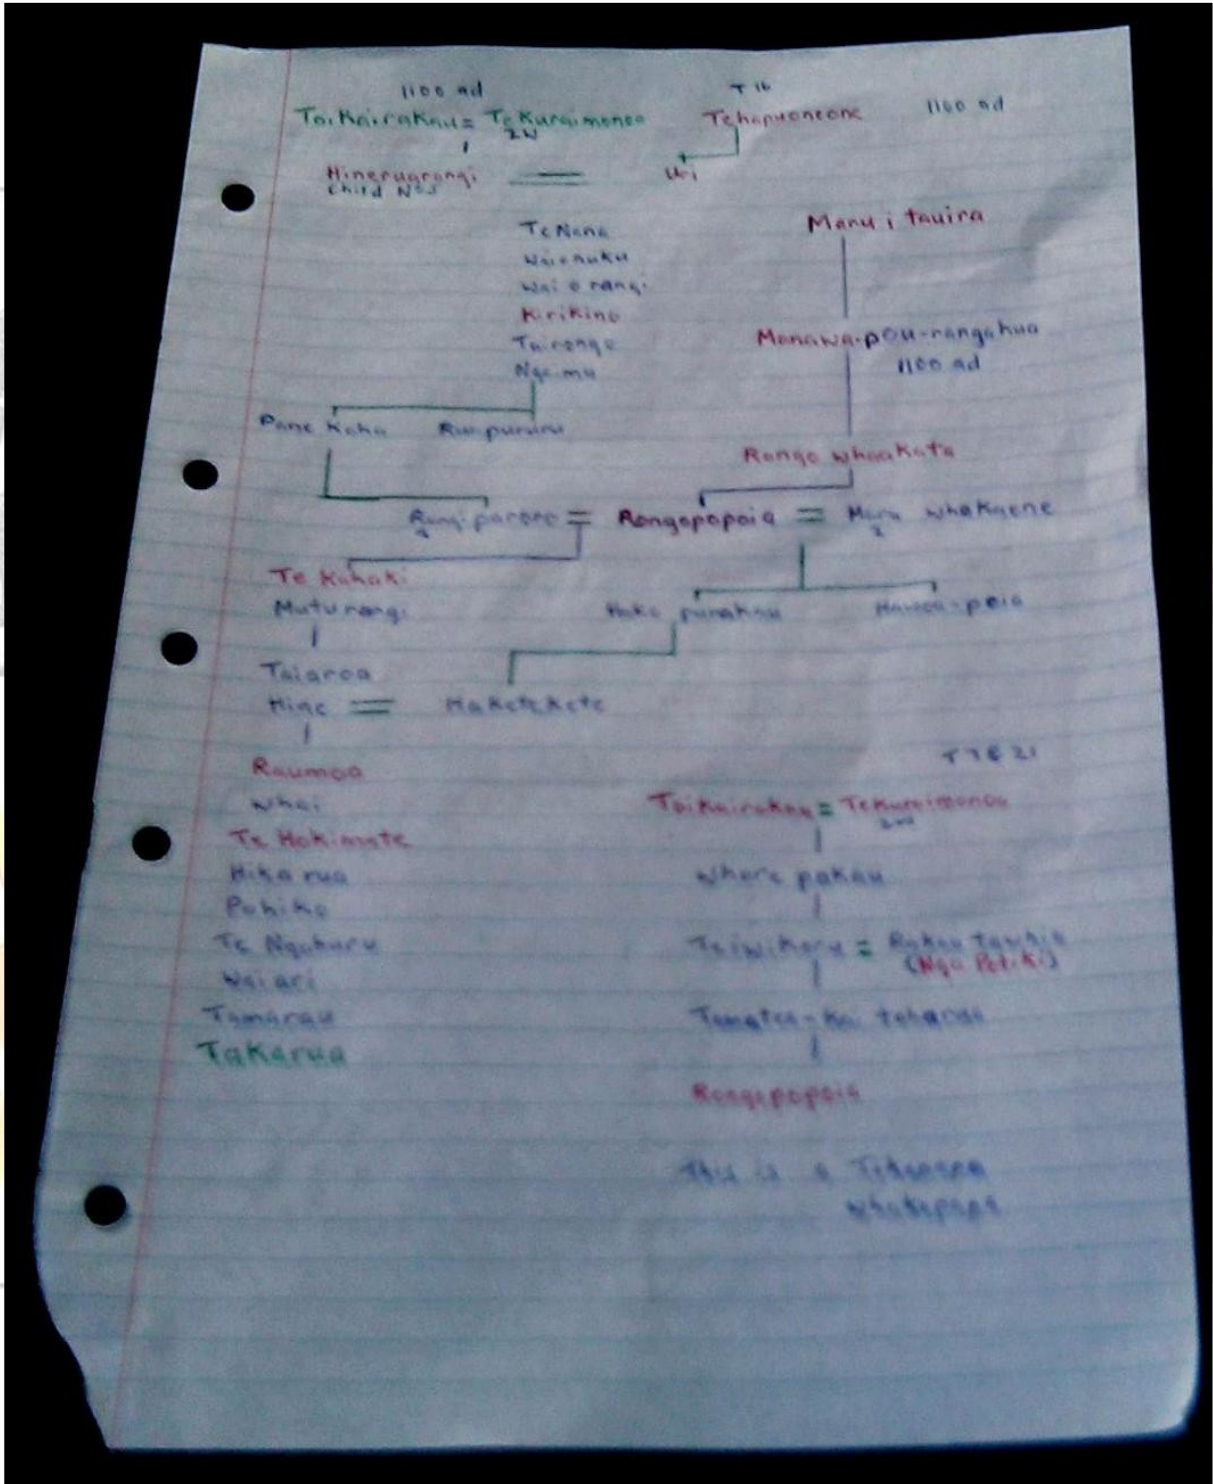 1100 ad
T 16
Toikairakau = Te Kuraimonoa
2W
Tehapuoneone
1100 ad
Hineruarangi
Child No
Uri
Manu i tauira
Te Nana
Waionuku
Wai o rangi
Kirikino
Tairongo
Ngaimu
Manawa-pou-rangahua
1100 ad
Pane Kaha
Ruapururu
Rongo whaakata
Rangiparoro = Rongopopoia = Mara whakaene
2
Te Kahaki
Muturangi
Hake punakau
Hamoa-poia
Taiaroa
Hine = Haketekete
Raumoa
Whai
Te Hokimate
Hika rua
Pohiko
Te Ngahuru
Waiari
Tamarau
Takarua
Toikairakau = Te Kuraimonoa
Whare pakau
Taiwikaru = Rakau tawhia
(Nga Potiki)
Tamatea-kai taharua
Rongopopoia
This is a Tuhoe
whakapapa